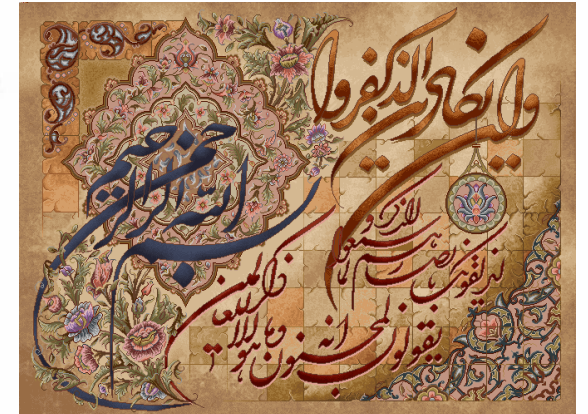 بسم الله الرحمن الرحیم
وإن یکاد الذین کفروا
لیزلقونک بأبصارهم لما سمعوا الذکر و
یقولون إنه لمجنون
وما هو إلا ذکر للعالمین